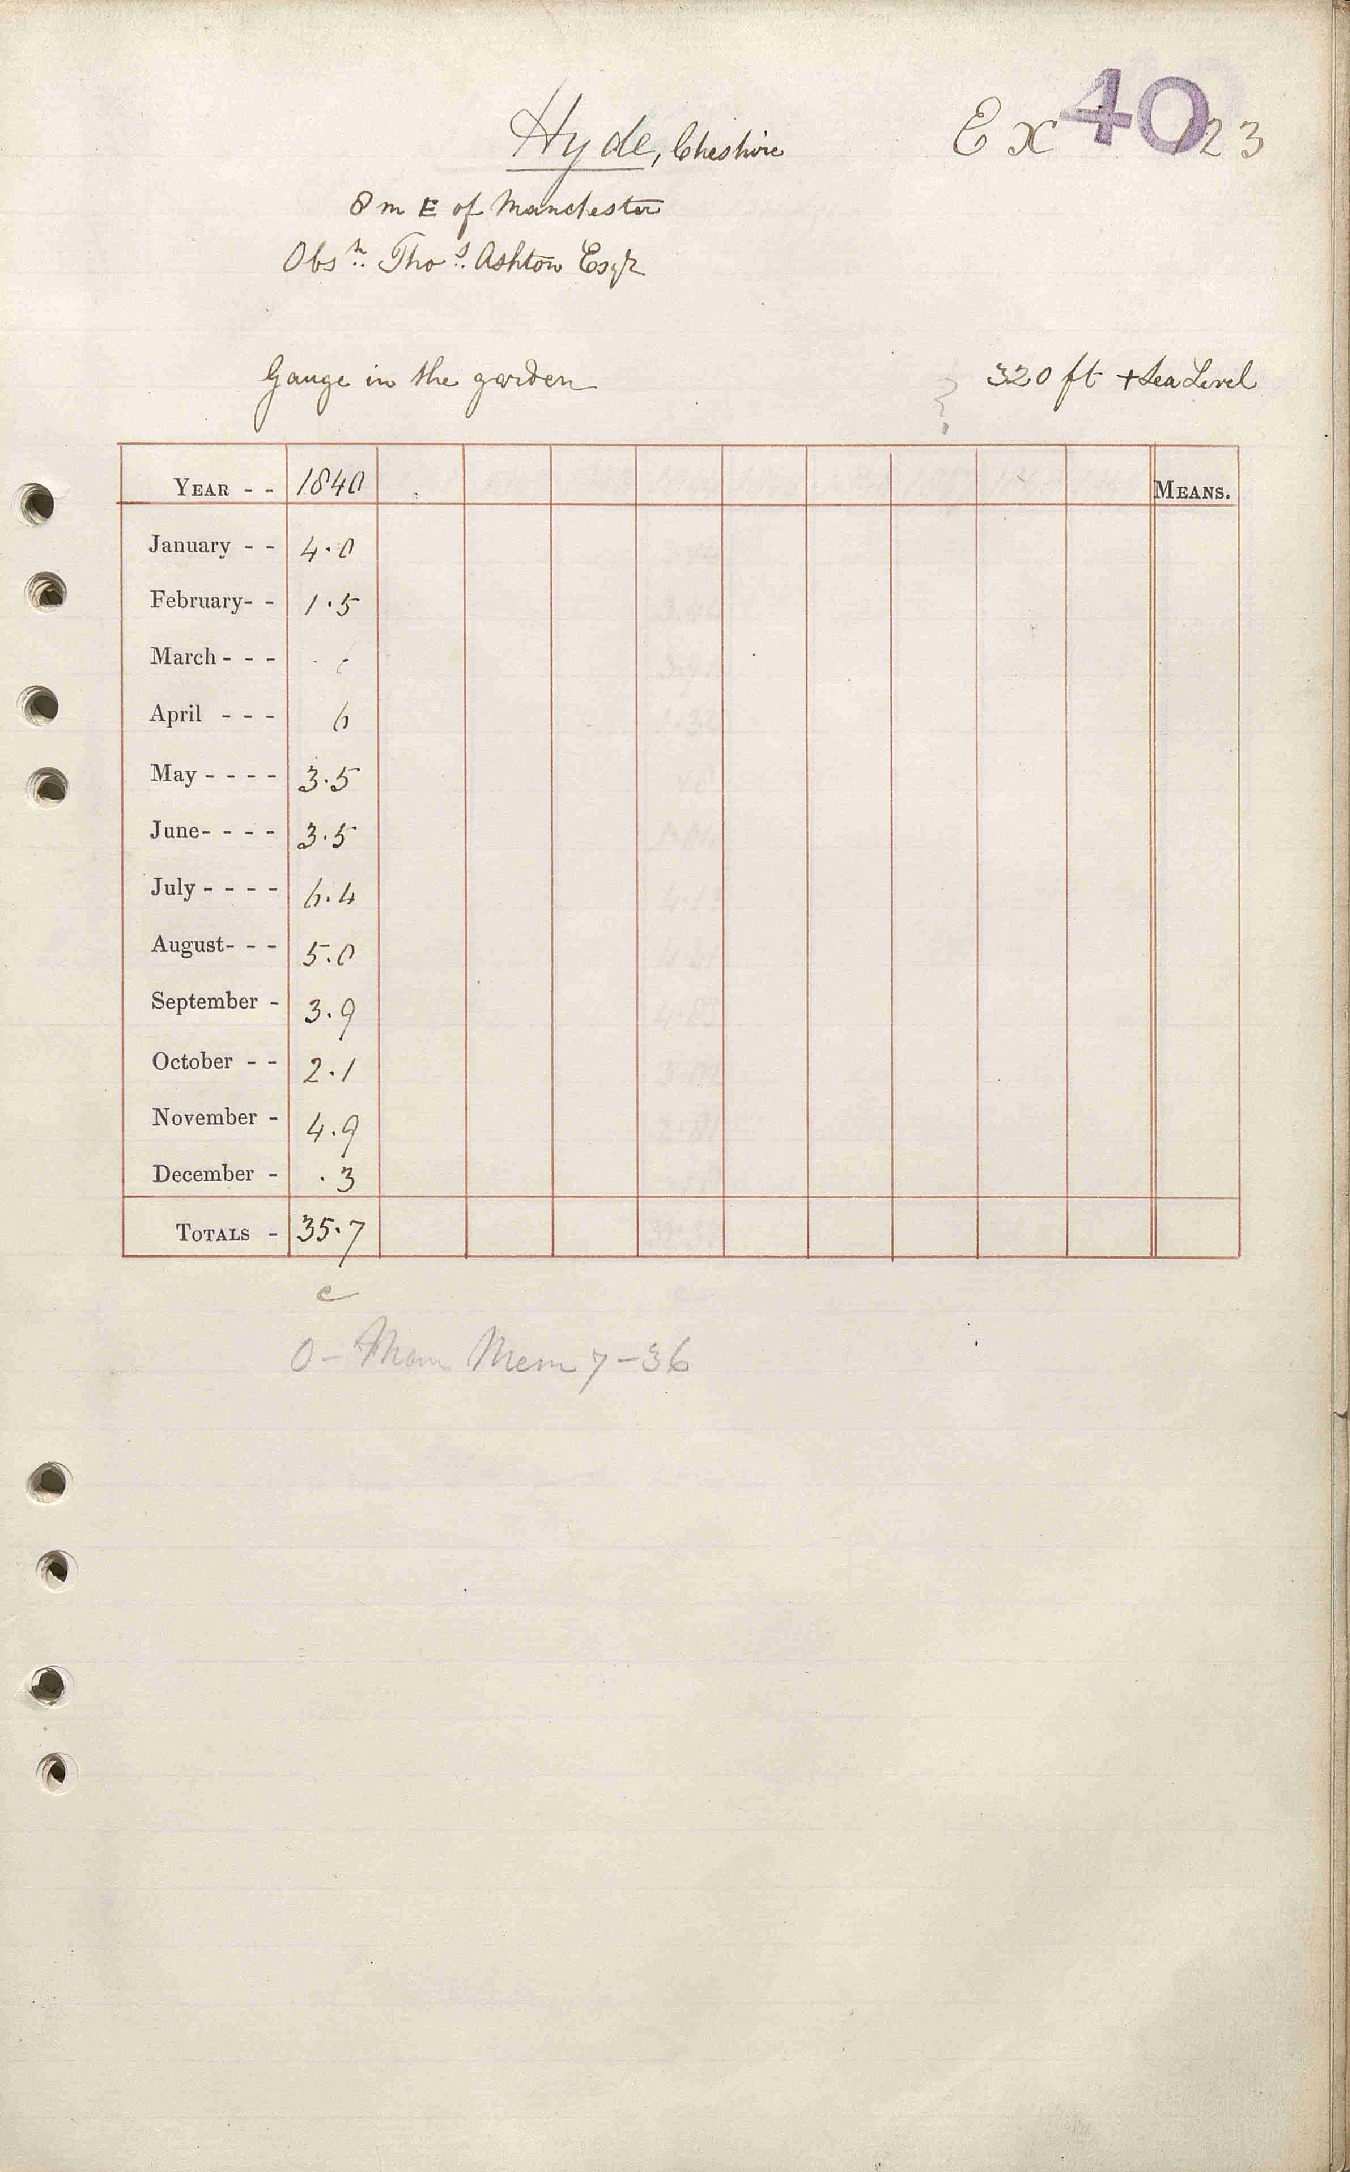 Hyde, Cheshire
Ex 40 23
8 m E of Manchester
Obsr. Thos. Ashton Esqr
Gauge in the garden 320 ft + Sea Level
YEAR - - 1840 MEANS.
January - - 4.0
February- - 1.5
March - - -
April - - - 6
May - - - - 3.5
June- - - - 3.5
July - - - - 6.4
August- - - 5.0
September - 3.9
October - - 2.1
November - 4.9
December - .3
TOTALS - 35.7
c
0 - Man Mem 7 - 36